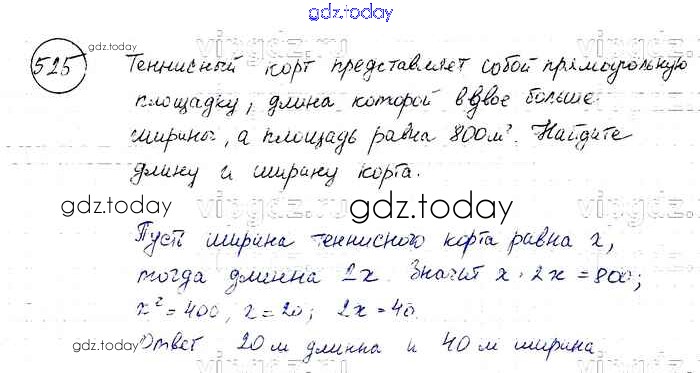 gdz.today
525 Теннисный корт представляет собой прямоугольную
площадку, длина которой вдвое больше
ширины, а площадь равна 800м². Найдите
длину и ширину корта.
gdz.today gdz.today
Пусть ширина теннисного корта равна x,
тогда длинна 2x. Значит x · 2x = 800;
x² = 400, x = 20; 2x = 40
Ответ 20 м длинна и 40 м ширина
gdz.today
gdz.today
gdz.today
gdz.today